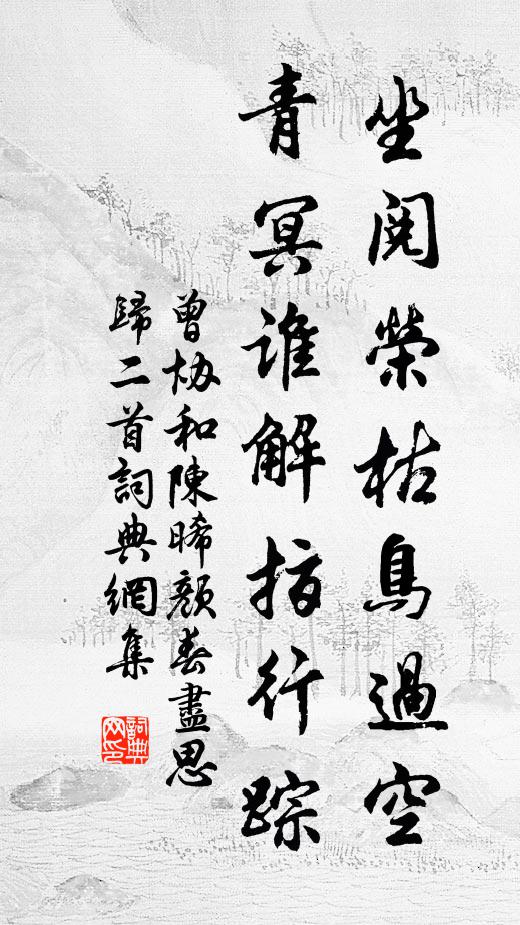 坐閱榮枯鳥過空
青冥誰解指行踪
曾協和陳晞顏春盡思
歸二首詞典網集
詞典
网印